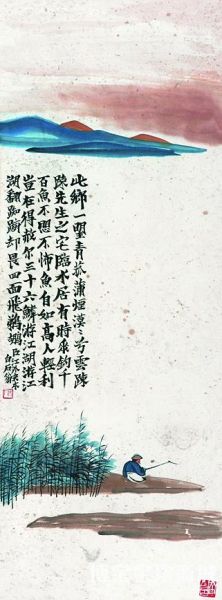 此鄉一望青菰蒲煙漠漠兮雲疎
疎先生之宅臨水居有時垂釣千
百魚不聞不怖魚自如高人輕利
豈在得放尔三十六鱗游江湖游江
湖翻踟蹰却畏四面飛鵜鶘
白石翁